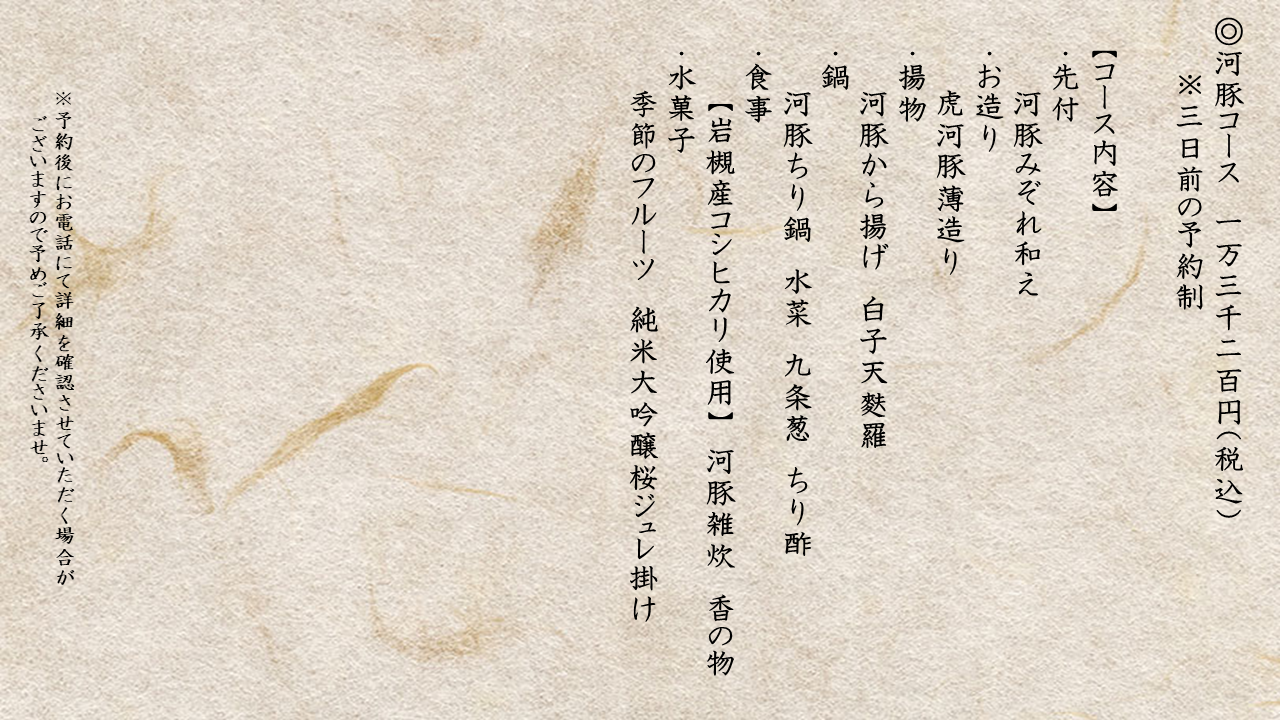 ◎河豚コース　一万三千二百円（税込）
※三日前の予約制
【コース内容】
・先付
河豚みぞれ和え
・お造り
虎河豚薄造り
・揚物
河豚から揚げ　白子天麩羅
・鍋
河豚ちり鍋　水菜　九条葱　ちり酢
・食事
【岩槻産コシヒカリ使用】　河豚雑炊　香の物
・水菓子
季節のフルーツ　純米大吟醸桜ジュレ掛け
※予約後にお電話にて詳細を確認させていただく場合が
ございますので予めご了承くださいませ。